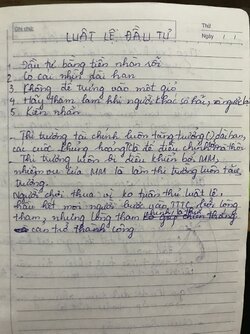 Ghi chú:
Thứ
Ngày / /
LUẬT LỆ ĐẦU TƯ
1 Đầu tư bằng tiền nhàn rỗi
2 Có cái nhìn dài hạn
3 Không để trứng vào một giỏ
4 Hãy tham lam khi người khác sợ hãi,
5. Kiên nhẫn
Thị trường tài chính luôn tăng trưởng dài hạn,
các cuộc khủng hoảng là để điều chỉnh
Thị trường luôn bị điều khiển bởi MM,
nhiệm vụ của MM là làm thị trường luôn tăng
trưởng.
Người chơi thua vì ko tuân thủ luật lệ,
hầu hết mọi người bước vào TTTC bởi lòng
tham, nhưng lòng tham
cản trở thành công